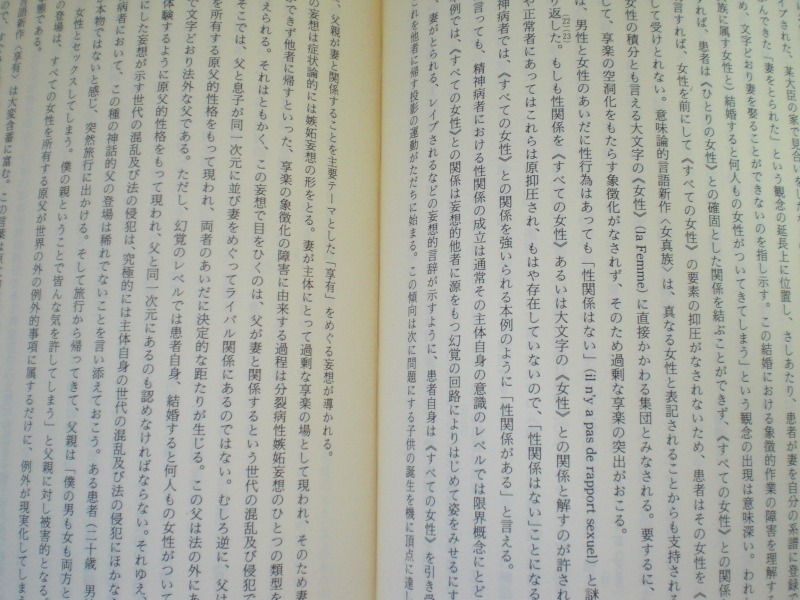 イプされた、某大臣の家で見合いをした
んできた「妻をとられた」という観念の延長上に位置し、さしあたり、患者が妻を自分の系譜に登録で
め、文字どおり妻を娶ることができないのを指し示す。この結婚における象徴的作業の障害を理解する
族に属す女性と）結婚すると何人もの女性がついてきてしまう」という観念の出現は意味深い。われ
れば、患者は《ひとりの女性》との確固とした関係を結ぶことができず、《すべての女性》との関係
言すれば、女性を前にして《すべての女性》の要素の抑圧がなされないため、患者はその女性を《
して受けとれない。意味論的言語新作〈女真族〉は、真なる女性と表記されることからも支持される
女性の積分とも言える大文字の《女性》(la Femme)に直接かかわる集団とみなされる。要するに、
して、享楽の空洞化をもたらす象徴化がなされず、そのため過剰な享楽の突出がおこる。
は、男性と女性のあいだに性行為はあっても「性関係はない」(il n'y a pas de rapport sexuel)と謎
り返した。(22)(23)もしも性関係を《すべての女性》あるいは大文字の《女性》との関係と解すのが許され
や正常者にあってはこれらは原抑圧され、もはや存在していないので、「性関係はない」ことになる
神病者では、《すべての女性》との関係を強いられる本例のように「性関係がある」と言える。
言っても、精神病者における性関係の成立は通常その主体自身の意識のレベルでは限界概念にとど
例では、《すべての女性》との関係は妄想的他者に源をもつ幻覚の回路によりはじめて姿をみせるにす
、妻がとられる、レイプされるなどの妄想的言辞が示すように、患者自身は《すべての女性》を引き受
これを他者に帰す投影の運動がただちに始まる。この傾向は次に問題にする子供の誕生を機に頂点に達し
、父親が妻と関係することを主要テーマとした「享有」をめぐる妄想が導かれる。
の妄想は症状論的には嫉妬妄想の形をとる。妻が主体にとって過剰な享楽の場として現われ、そのため妻
できず他者に帰すといった、享楽の象徴化の障害に由来する過程は分裂病性嫉妬妄想のひとつの類型を
えられる。それはともかく、この妄想で目をひくのは、父が妻と関係するという世代の混乱及び侵犯で
そこでは、父と息子が同一次元に並び妻をめぐってライバル関係にあるのではない。むしろ逆に、父は
を所有する原父的性格をもって現われ、両者のあいだに決定的な距たりが生じる。この父は法の外にあ
で文字どおり法外な父である。ただし、幻覚のレベルでは患者自身、結婚すると何人もの女性がついて
体験するように原父的性格をもって現われ、父と同一次元にあるのも認めなければならない。それゆえ、
にした妄想が示す世代の混乱及び法の侵犯は、究極的には主体自身の世代の混乱及び法の侵犯にほかな
病者において、この種の神話的父の登場は稀れでないことを言い添えておこう。ある患者（二十歳 男
本物ではないと感じ、突然旅行に出かける。そして旅行から帰ってきて、父親は「僕の男も女も両方と
女性とセックスしてしまう。僕の親ということで皆んな気を許してしまう」と父親に対し被害的となる。
の登場は、すべての女性を所有する原父が世界の外の例外的事項に属するだけに、例外が現実化してしま
態である。
言語新作〈享有〉は大変含蓄に富む。この言葉は